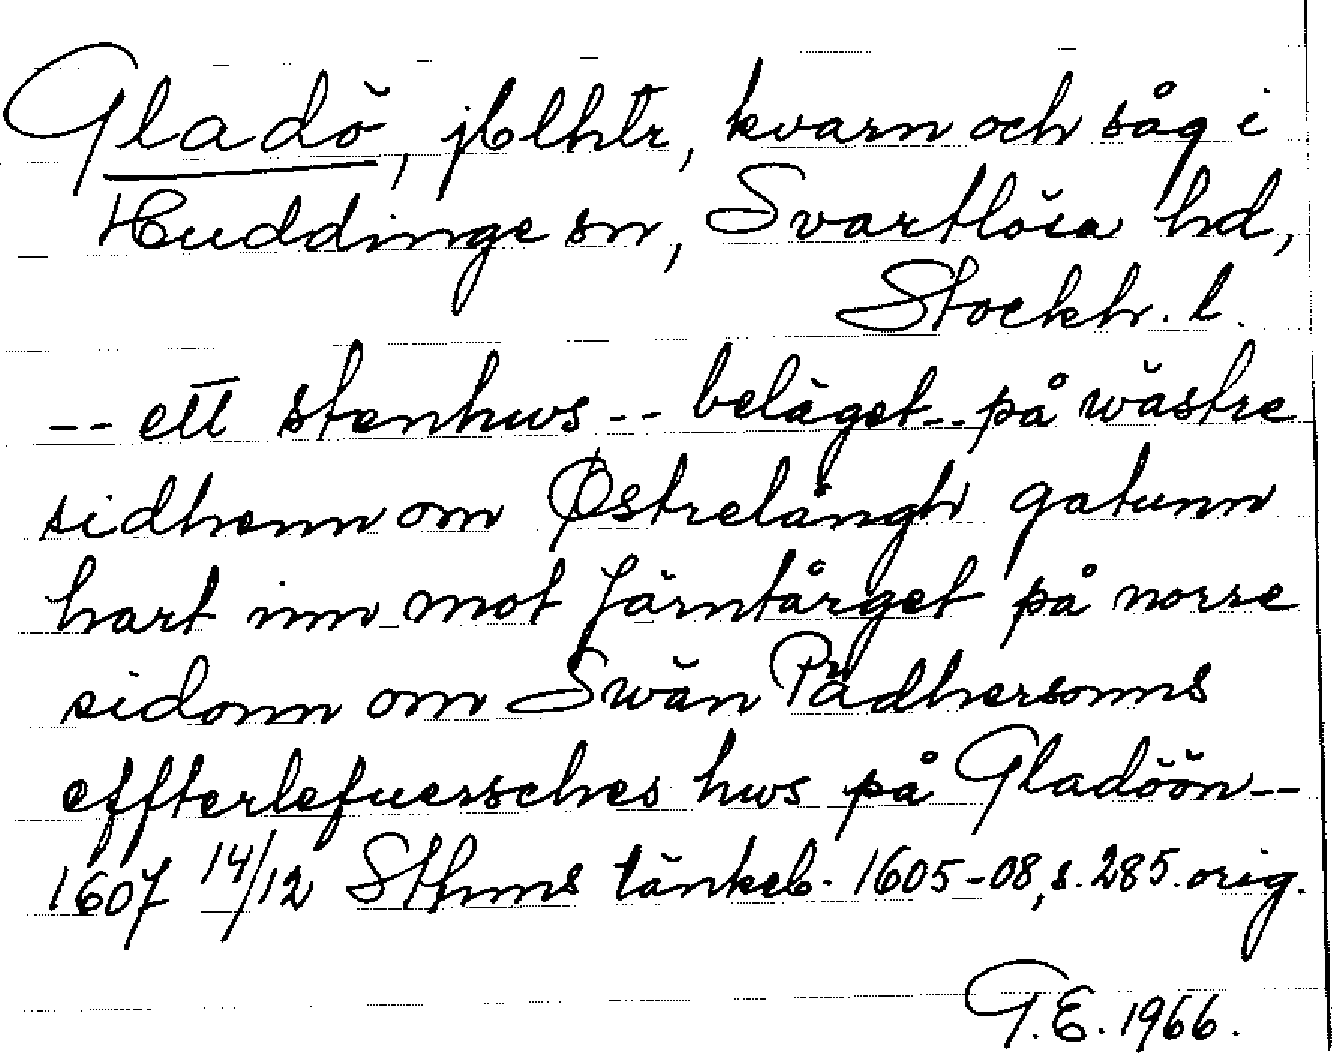 Gladö, jblhtr, kvarn och såg i
Huddinge sn, Svartlösa hd,
Stockh. l.
-- ett stenhws -- beläget -- på wästre
sidhenn om Østrelångh gatunn
hart inn mot Järntårget på norre
sidonn om Swän Pädhersonns
effterlefuersches hws på Gladöön --
1607 14/12 Sthms tänkeb. 1605-08, s. 285. orig.
G. E. 1966.